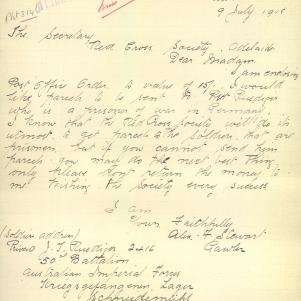 9 July 191
The Secretary
Red Cross Society, Adelaide
Dear Madam
I am enclosing
Post Office Order to value of 15/. I would
like parcels to be sent to Pte Ruediger
who is a prisoner of war in Germany
I know that the Red Cross Society will do its
utmost to get parcels to the soldiers that are
prisoners but if you cannot send him
parcels you may do the next best thing
only please dont return the money to
me Wishing the society every success
I am
Yours Faithfully
(Soldier address) Alex. F Stewart
Private J. T. Ruediger 2416 Gawler
50th Battalion
Australian Imperial Forces
Kriegsgefangenen Lager